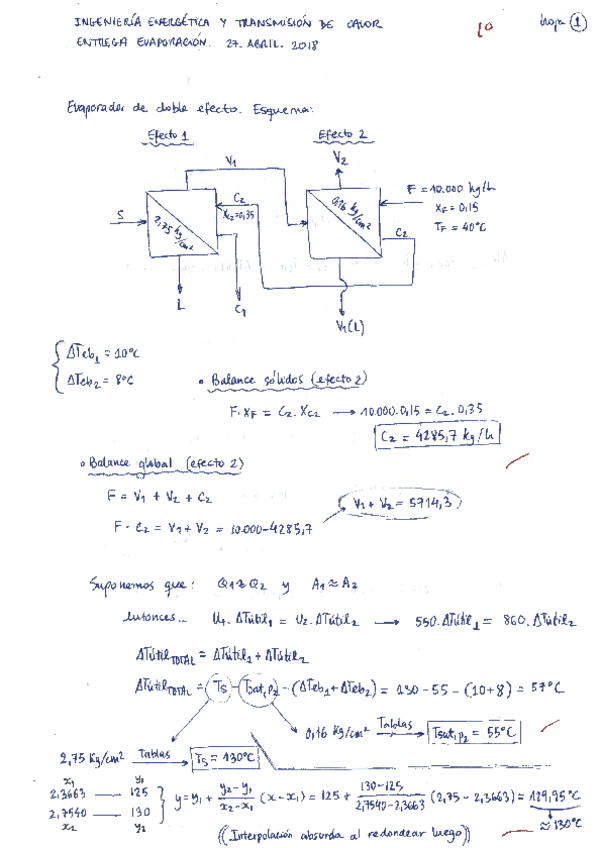 INGENIERÍA ENERGÉTICA Y TRANSMISIÓN DE CALOR
10
hoja 1
ENTREGA EVAPORACIÓN. 27. ABRIL. 2018
Evaporador de doble efecto. Esquema:
Efecto 1
Efecto 2
V1
V2
S
2,75 kg/cm²
C2
XC2=0,35
0,16 kg/cm²
F = 10.000 kg/h
XF = 0,15
TF = 40ºC
C2
L
C1
V1(L)
ΔTeb1 = 10ºC
ΔTeb2 = 8ºC
• Balance sólidos (efecto 2)
F·XF = C2·XC2 → 10.000·0,15 = C2·0,35
C2 = 4285,7 kg/h
• Balance global (efecto 2)
F = V1 + V2 + C2
V1 + V2 = 5714,3
F - C2 = V1 + V2 = 10.000-4285,7
Suponemos que: Q1≈Q2 y A1≈A2
entonces... U1·ΔTútil1 = U2·ΔTútil2 → 550·ΔTútil1 = 860·ΔTútil2
ΔTútilTOTAL = ΔTútil1 + ΔTútil2
ΔTútilTOTAL = TS - Tsat,p2 - (ΔTeb1 + ΔTeb2) = 130 - 55 - (10+8) = 57ºC
0,16 kg/cm² Tablas → Tsat,p2 = 55ºC
2,75 kg/cm² Tablas → TS = 130ºC
x1 y1
2,3663 — 125
2,7540 — 130
x2 y2
y = y1 + (y2-y1)/(x2-x1) (x-x1) = 125 + (130-125)/(2,7540-2,3663) (2,75-2,3663) = 129,95ºC
≈ 130ºC
((Interpolación absurda al redondear luego))